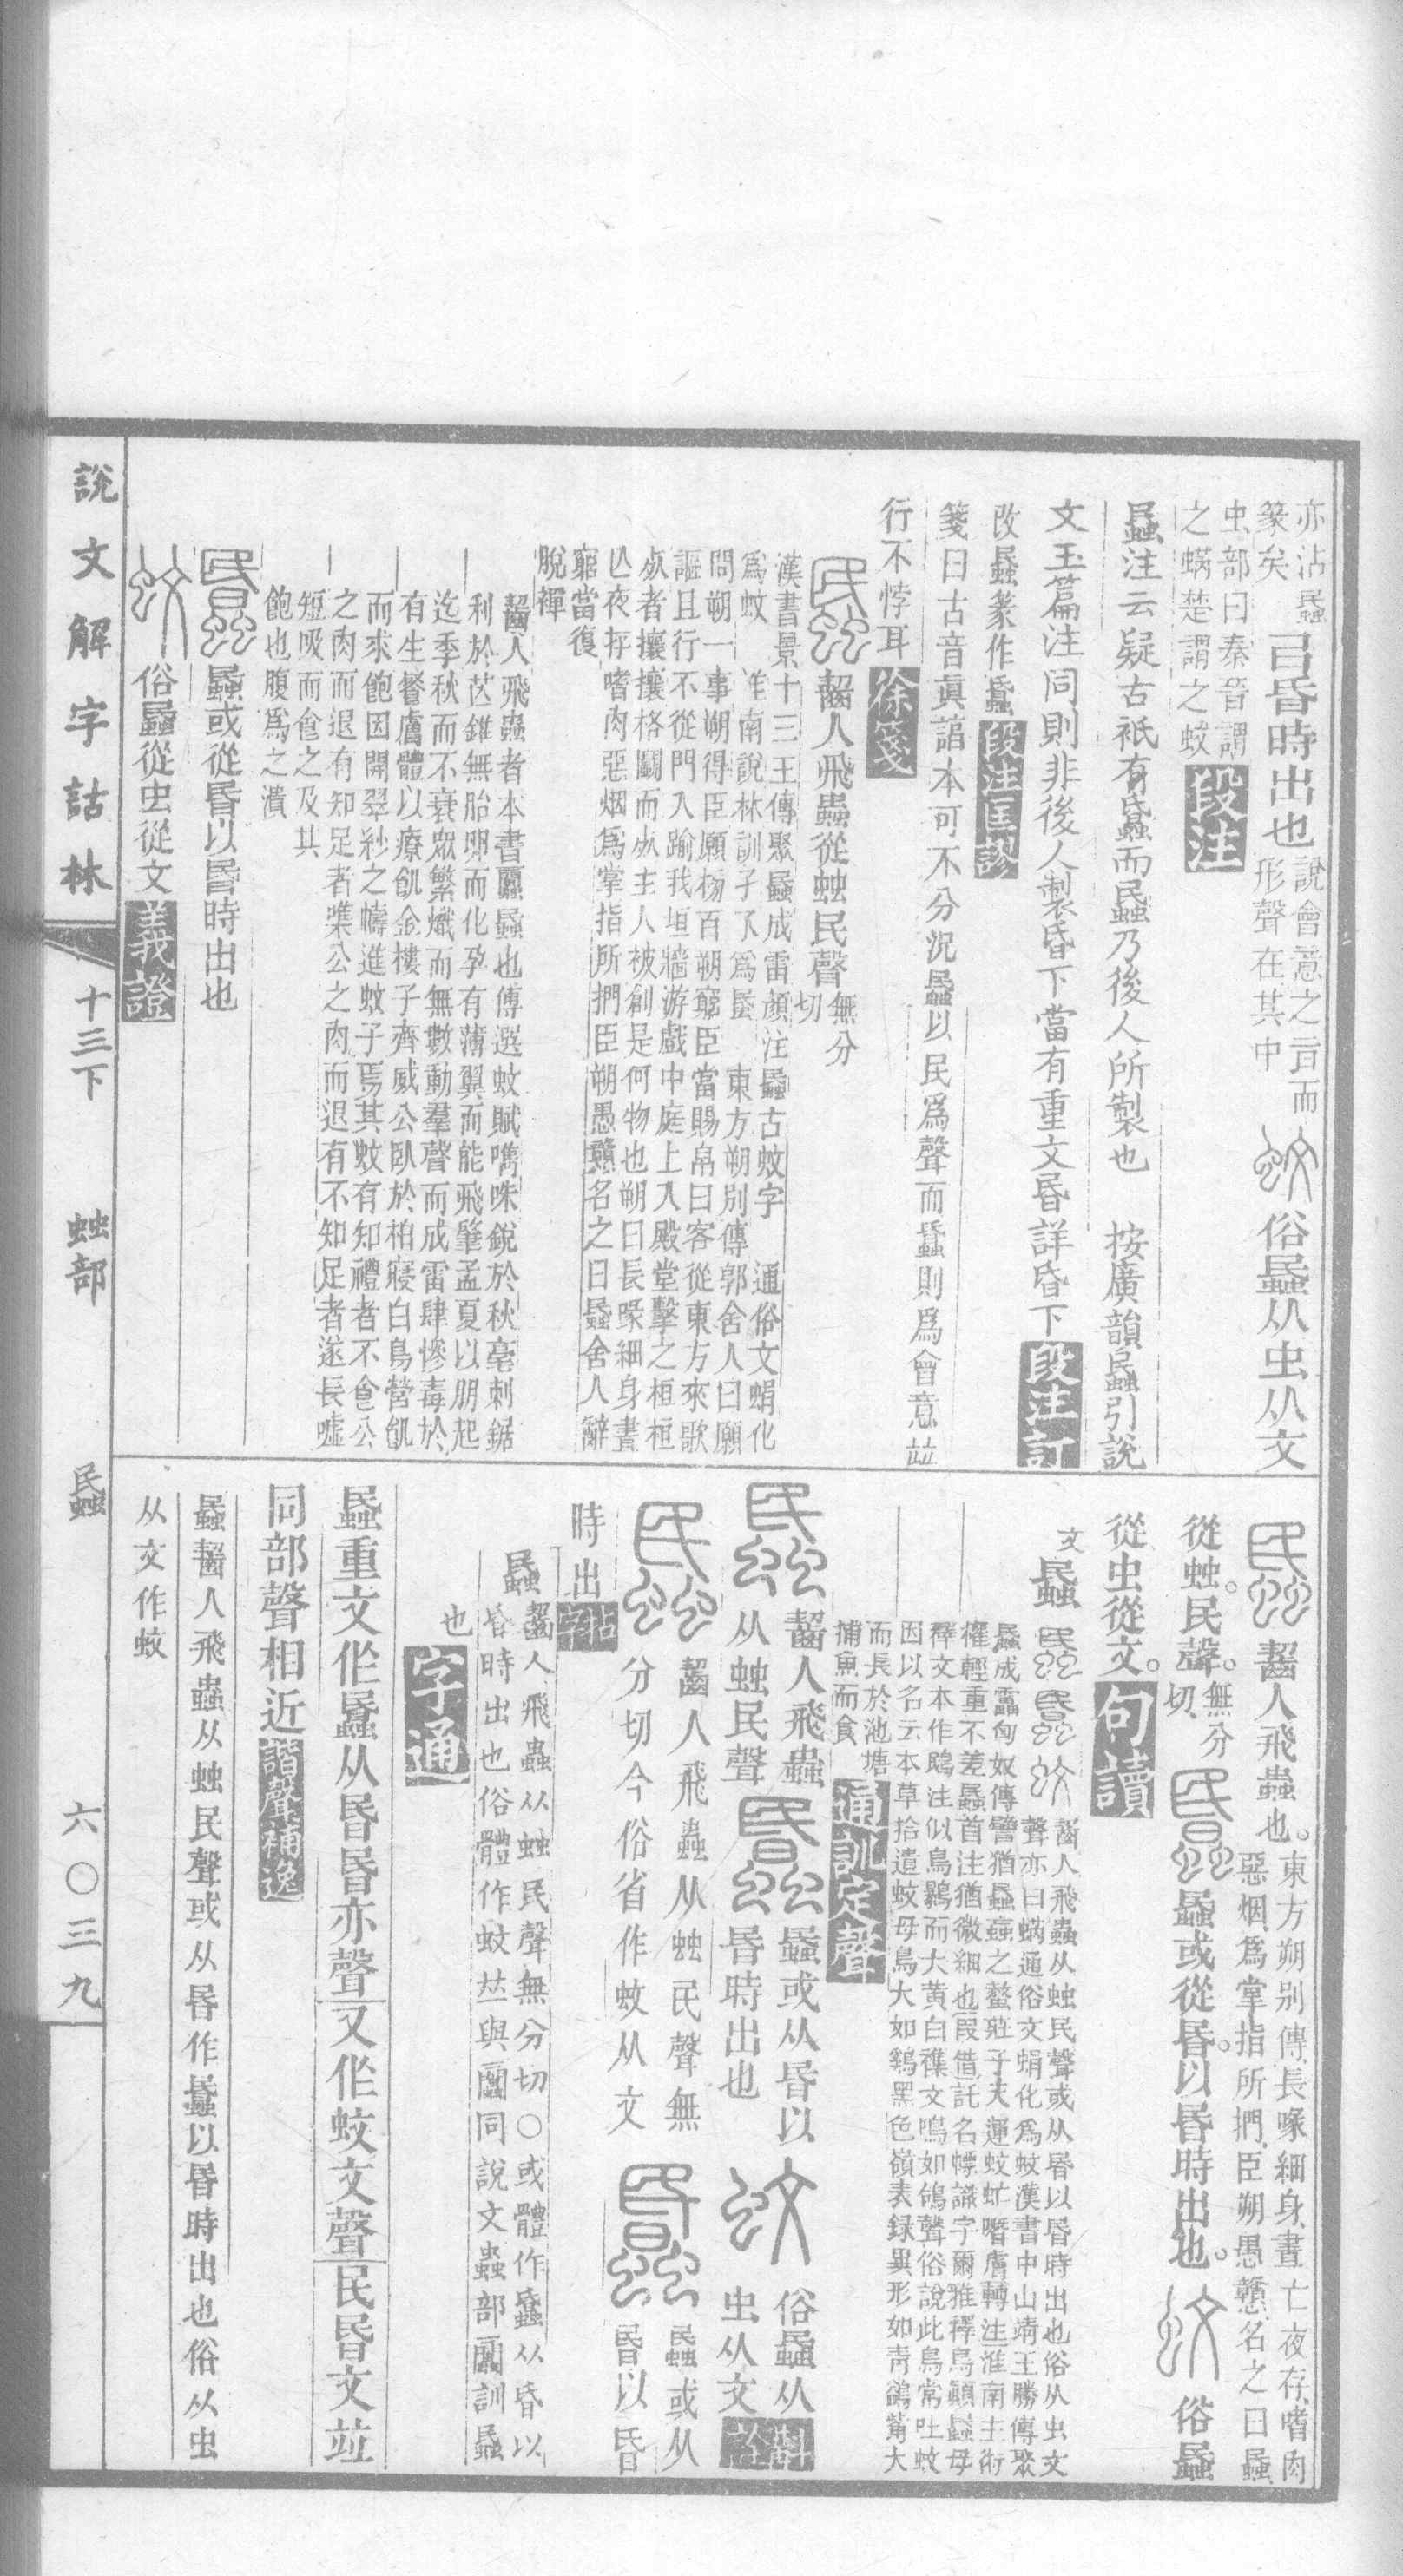 亦沾䘇篆矣
㠯昏時出也
說會意之㫖而形聲在其中
俗䘇从虫从文
虫部曰秦晉謂之蜹楚謂之蚊
段注
䘇注云疑古衹有䘉而䘇乃後人所製也 按廣韻䘇引說
文玉篇注同則非後人製昏下當有重文昬詳昏下
段注訂
改䘇篆作䘉
段注匡謬
箋曰古音眞諄本可不分況䘇以民爲聲而䘉則爲會意竝
行不悖耳
徐箋
齧人飛蟲從䖵民聲
無分切
漢書景十三王傳聚䘇成雷顏注䘇古蚊字 通俗文蜎化
爲蚊 淮南說林訓孑孓爲䖟 東方朔別傳郭舍人曰願
問朔一事朔得臣願榜百朔窮臣當賜帛曰客從東方來歌
謳且行不從門入踰我垣牆游戲中庭上入殿堂擊之桓桓
死者攘攘格鬭而死主人被創是何物也朔曰長喙細身晝
亾夜存嗜肉惡烟爲掌指所捫臣朔愚戇名之曰䘇舍人辭
窮當復
脫褌
齧人飛蟲者本書䘇也傅選蚊賦嘴咮銳於秋毫刺鋸
利於芒錐無胎卵而化孕有薄翼而能飛肇孟夏以朋起
迄季秋而不衰眾繁熾而無數動羣聲而成雷肆慘毒於
有生餐膚體以療飢金樓子齊威公臥於柏寢白鳥營飢
而求飽因開翠紗之幬進蚊子焉其蚊有知禮者不食公
之肉而退有知足者噍公之肉而退有不知足者遂長噓
短吸而食之及其
飽也腹爲之潰
䘇或從昬以昬時出也
俗䘇從虫從文
義證
齧人飛蟲也。
東方朔別傳長喙細身晝亡夜存嗜肉
惡烟爲掌指所捫臣朔愚戇名之曰䘇
從䖵民聲。
無分切
䘇或從昬。以昬時出也。
俗䘇
從虫從文。
句讀
文䘇
齧人飛蟲从䖵民聲或从昬以昬時出也俗从虫文
聲亦曰蜹通俗文蜎化爲蚊漢書中山靖王勝傳聚
䘇成靁匈奴傳譬猶䘇䖟之螫莊子天運蚊虻噆膚轉注淮南主術
權輕重不差䘇首注猶微細也叚借託名幖識字爾雅釋鳥鷏䘇母
釋文本作鴖注似烏鷃而大黃白襍文鳴如鴿聲俗說此鳥常吐蚊
因以名云本草拾遺蚊母鳥大如鷄黑色嶺表録異形如靑鷁觜大
而長於池塘
捕魚而食
通訓定聲
齧人飛蟲
从䖵民聲
䘇或从昬以
昬時出也
俗䘇从
虫从文
斠詮
齧人飛蟲从䖵民聲無
分切今俗省作蚊从文
䘇或从
昬以昏
時出
䘇
齧人飛蟲从䖵民聲無分切〇或體作䘉从昏以
昏時出也俗體作蚊竝與同說文蟲部訓䘇
也
字通
䘇重文作䘉从昬昬亦聲又作蚊文聲民昬文竝
同部聲相近
諧聲補逸
䘇齧人飛蟲从䖵民聲或从昬作䘉以昬時出也俗从虫
从文作蚊
說文解字詁林
十三下
䖵部
䘇
六〇三九